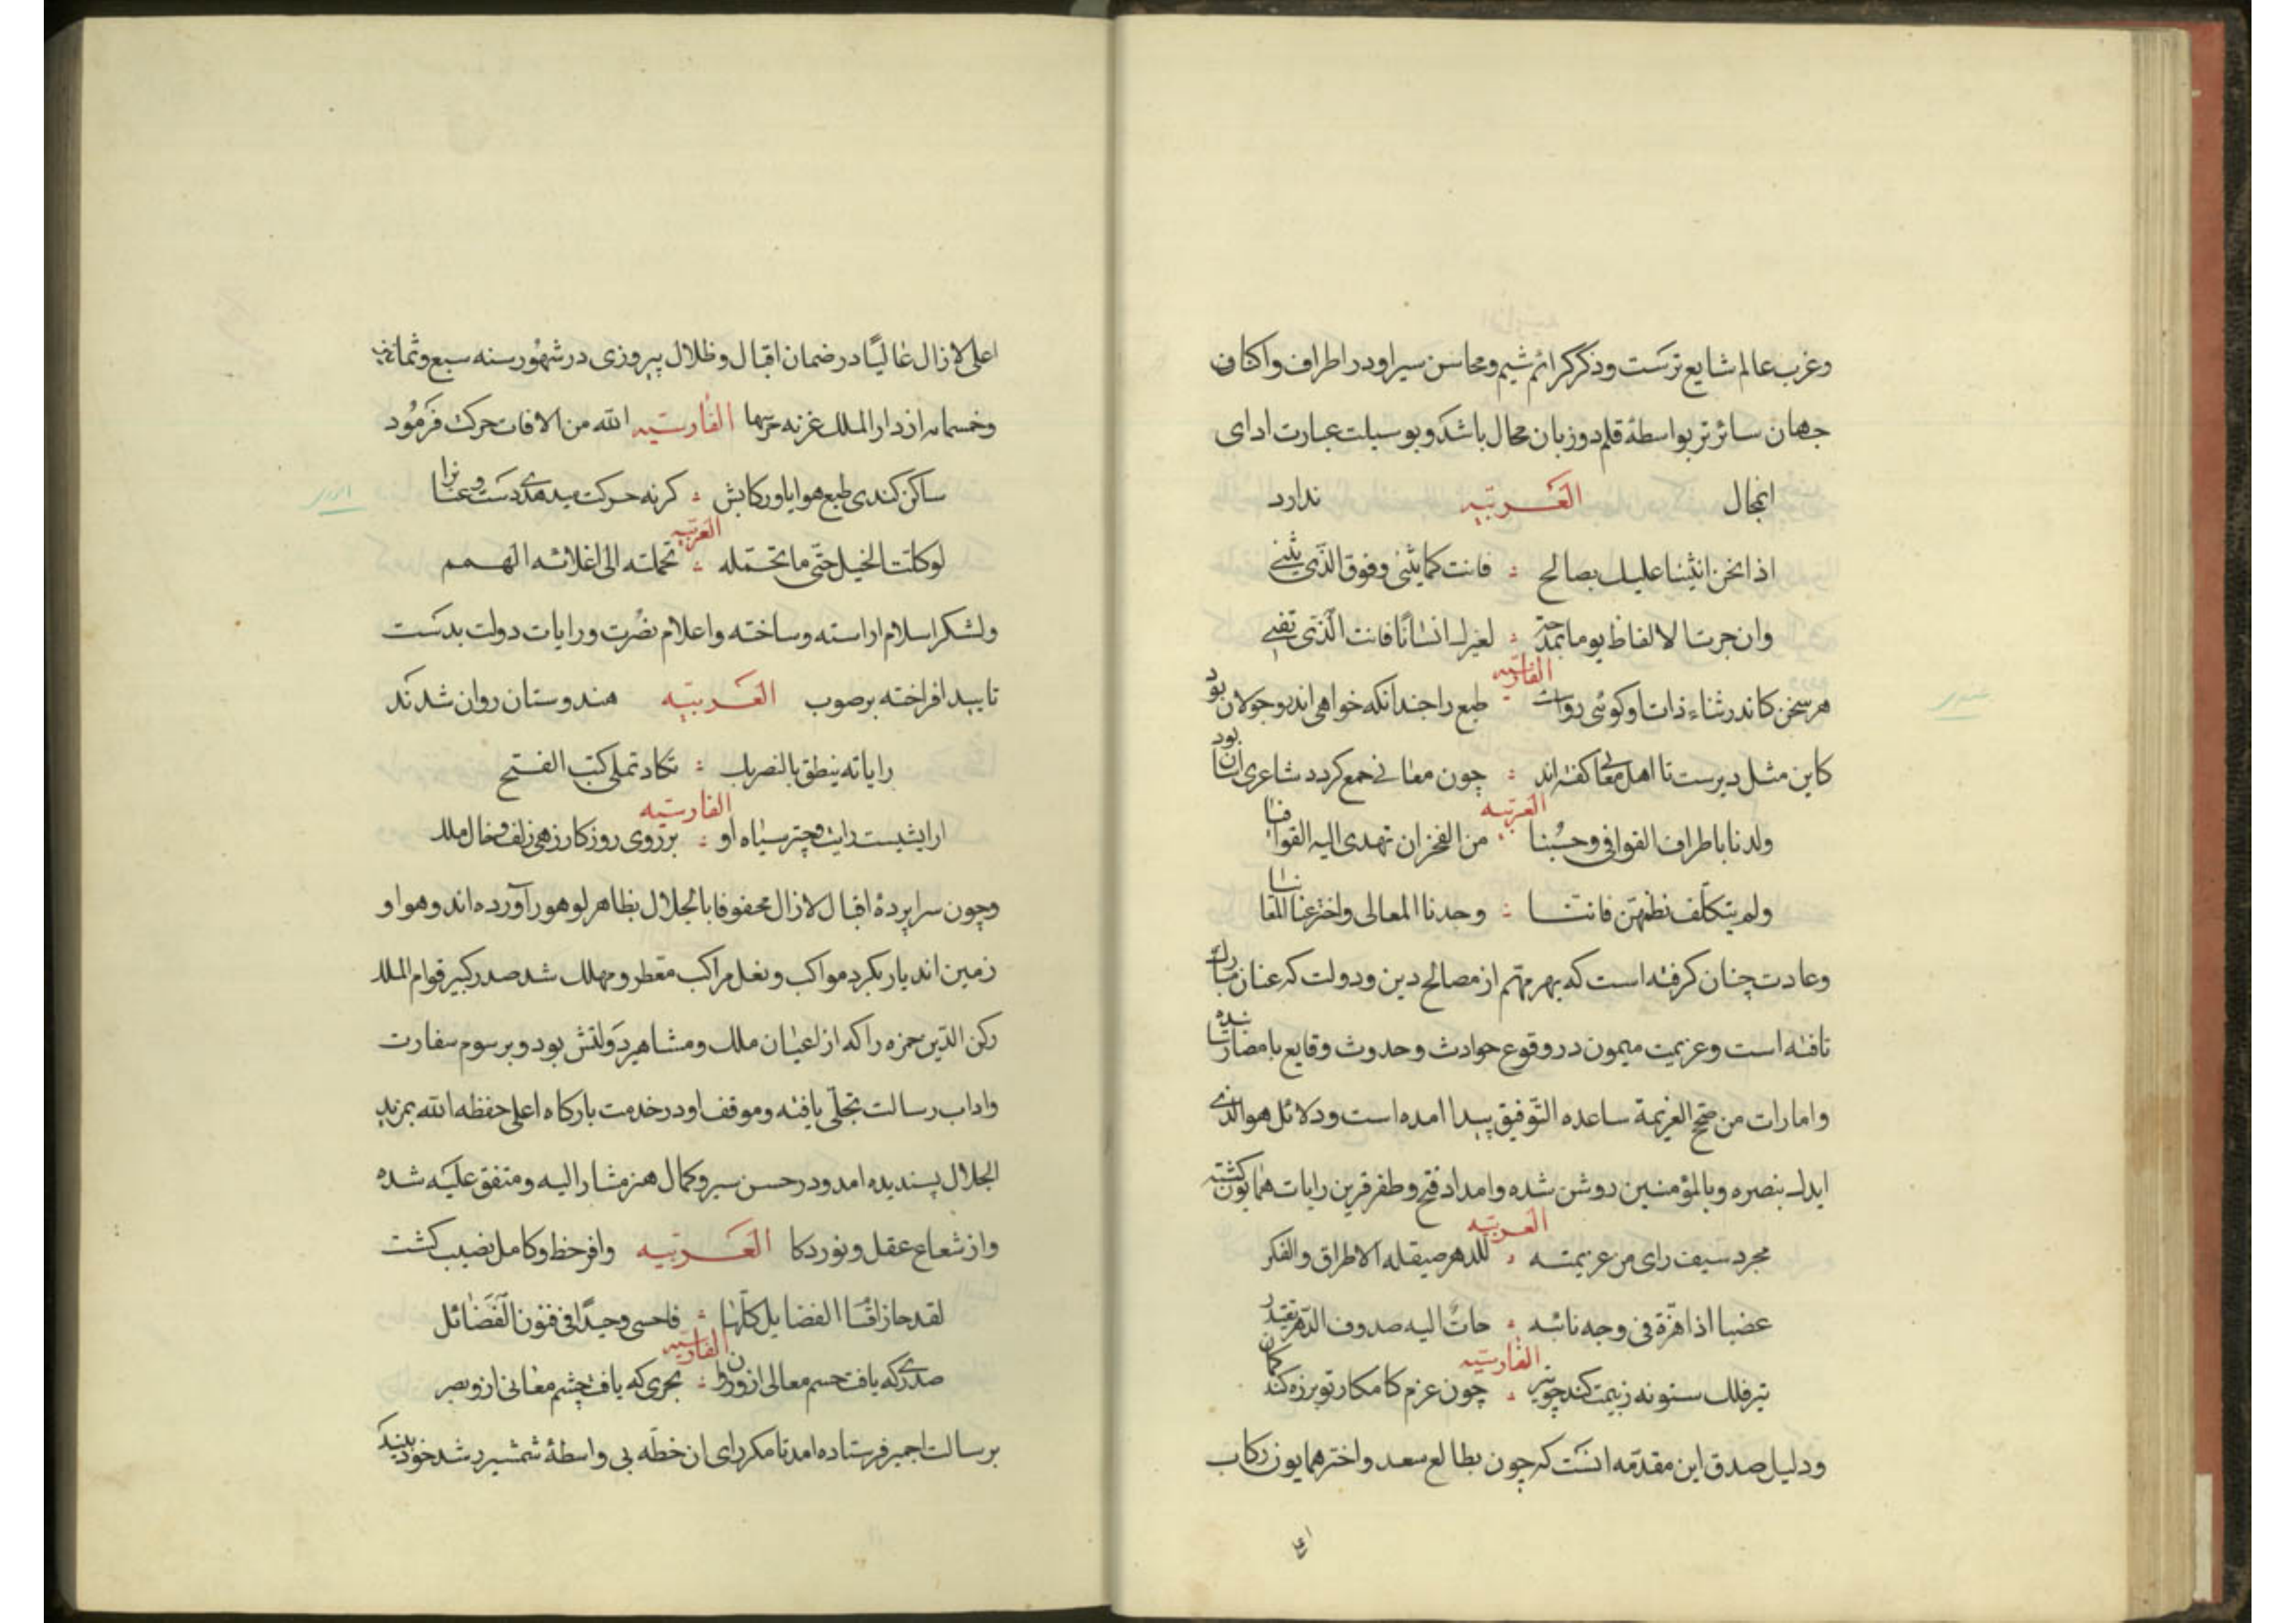 وغرب عالم شایع ترست وذکر کرائم شیم ومحاسن سیر او در اطراف واکناف
جهان سائرتر بواسطهٔ قلم دوزبان محال باشد وبوسیلت عبارت ادای
انمجال العربیه ندارد
اذا نحن اثنینا علیک بصالح فانت کما یثنی وفوق الذی یثنی
وان جرت الالفاظ یوما بمدحة لغیرک انسانا فانت الذی
الفارسیه
هر سخن کاندر ثناء ذات او کوئی رواست طبع را جندانکه خواهی اندرو جولان بود
کاین مثل دیرست تا اهل معانی کفته اند چون معانی جمع کردد شاعری آسان بود
العربیه
ولدنا باطراف القوافی وحسبنا من الفخر ان تهدی الیه القوافیا
ولم یتکلف نظمهن فاننا وجدنا المعالی واخترعنا المعانیا
وعادت چنان کرفته است که بهر مهم از مصالح دین ودولت که عنان مبارک
تافته است وعزیمت میمون در وقوع حوادث وحدوث وقایع بامضا رسانیده
وامارات من صحح العزیمة ساعده التوفیق پیدا امده است ودلائل هوالذی
ایدک بنصره وبالمؤمنین روشن شده وامداد فتح وظفر قرین رایات همایون کشته
العربیه
مجرد سیف رای من عزیمته للدهر صیقله الاطراق والفکر
عضبا اذا هزة فی وجه نائبه الیه صروف الدهر
الفارسیه
تیر فلک کند چو تیر چون عزم کامکار تو بر زه کند کمان
ودلیل صدق این مقدمه انست که چون بطالع سعد واختر همایون رکاب
اعلی لازال عالیا در ضمان اقبال وظلال پیروزی در شهور سنه سبع وثمانین
وخمسمایه از دار الملک غزنه حرسها الفارسیه الله من الافات حرکت فرمود
ساکن کندی طبع هوا یا ور کابش کرنه حرکت میدهدی دست وعنانرا
العربیه
لو کلت الخیل حتی ما تحمله تحملته الی اعدائه الهمم
ولشکر اسلام اراسته وساخته واعلام نصرت ورایات دولت بدست
تایید افراخته برصوب العربیه هندوستان روان شدند
رایاته ینطق بالنصر بک تکاد تملی کتب الفتح
الفارسیه
ارایشیست رایت وچتر سیاه او بر روی روزکار زهی زلف وخال ملک
وچون سراپردهٔ اقبال لازال محفوفا بالجلال بظاهر لوهور آورده اند وهوا و
زمین اندیار بکرد مواکب ونعل مراکب معطر ومهلک شد صدر کبیر قوام الملک
رکن الدین حمزه را که از اعیان ملک ومشاهیر دولتش بود وبرسوم سفارت
واداب رسالت تجلی یافته وموقف او در خدمت بارکاه اعلی حفظه الله بمزید
الجلال پسندیده امد ودر حسن سیر وکمال هنر مشار الیه ومتفق علیه شده
واز شعاع عقل ونور ذکا العربیه وافر حظ وکامل نصیب کشت
لقد حاز اقسا الفضایل کلها وحیدا فی فنون الفضائل
الفارسیه
صدری که یافت جسم معالی ازو روان بحری که یافت چشم معانی ازو بصر
برسالت اجمیر فرستاده امد تا مکر رای ان خطه بی واسطهٔ شمشیر رشد خود بیند